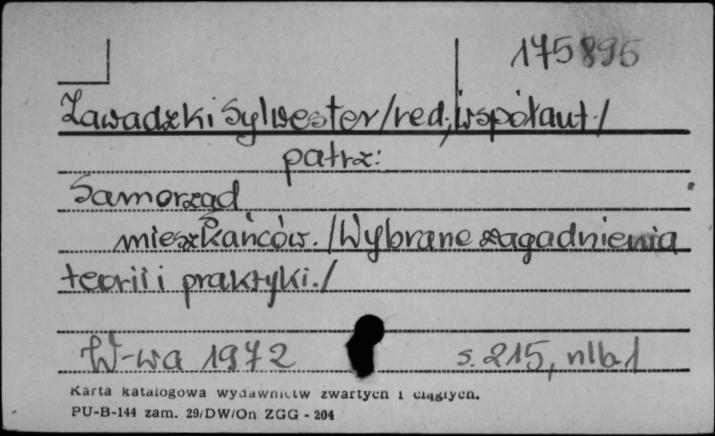 175895
Zawadzki Sylwester/red., współaut./
patrz:
Samorząd
mieszkańców. /Wybrane zagadnienia
teorii i praktyki./
W-wa 1972 s. 215, nlb 1
Karta katalogowa wydawnictw zwartych i ciągłych.
PU-B-144 zam. 29/DW/On ZGG - 204